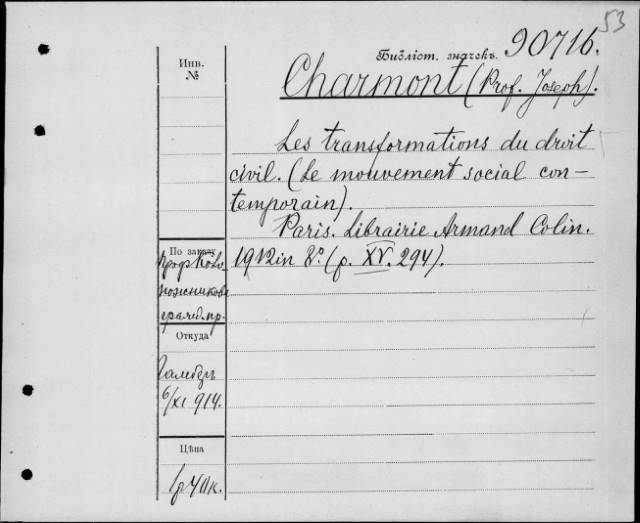 53
Библіот. значекъ. 90716.
Charmont (Prof. Joseph).
Инв.
№
Les transformations du droit
civil. (Le mouvement social con-
temporain).
Paris. Librairie Armand Colin.
1912 in 8°. (p. XV. 294).
По заказу
проф.
гражд. пр.
Откуда
6/XI 914.
Цѣна